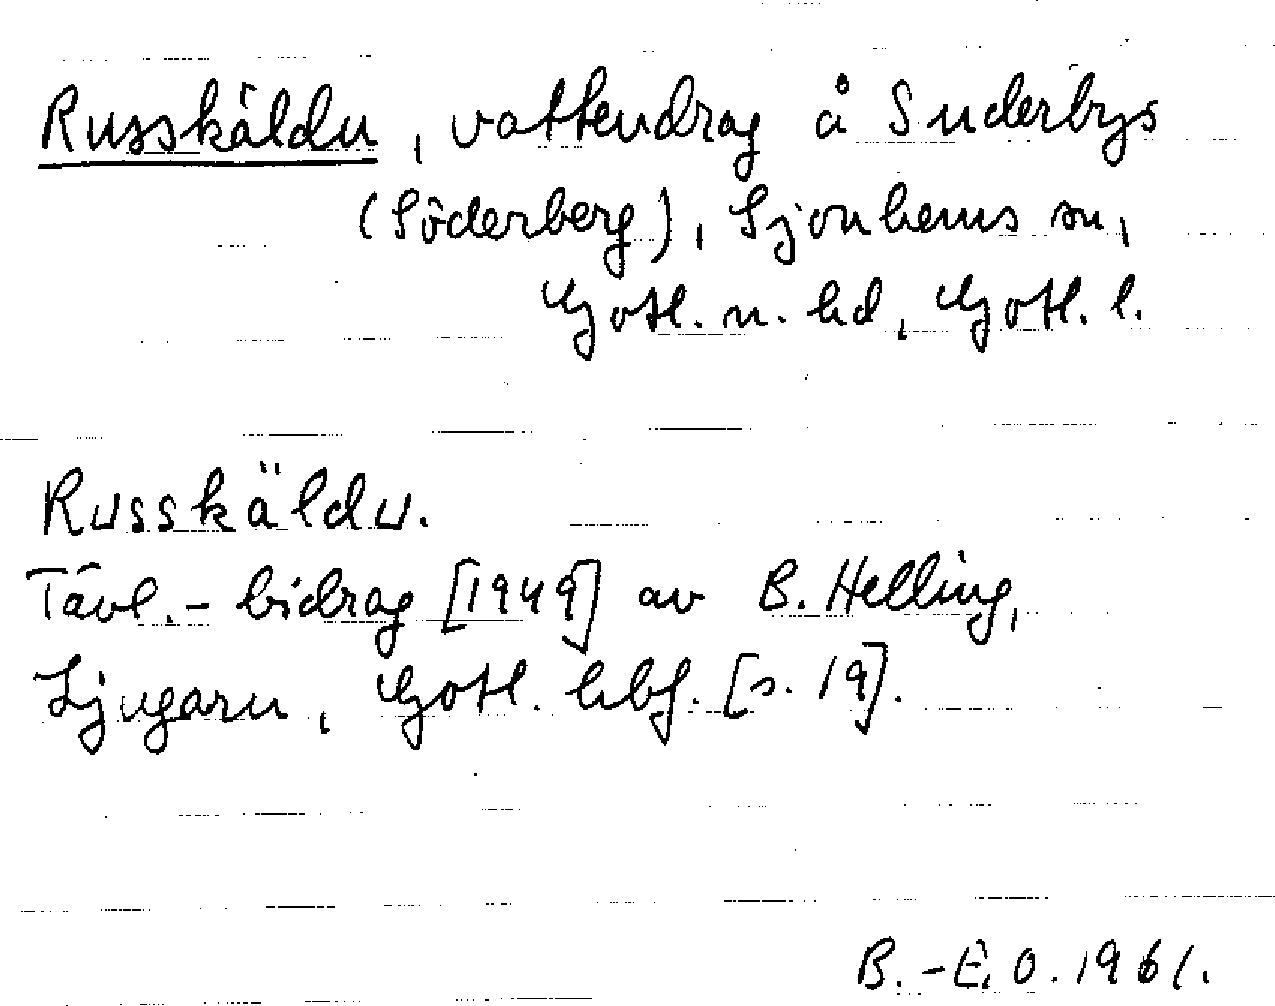 Russkäldu, vattendrag å Suderbys
(Söderberg), Sjonhems sn,
Gotl. n. hd, Gotl. l.
Russkäldu.
Tävl.-bidrag [1949] av B. Helling,
Ljugarn, Gotl. hbf. [s. 19].
B.-E.O. 1961.